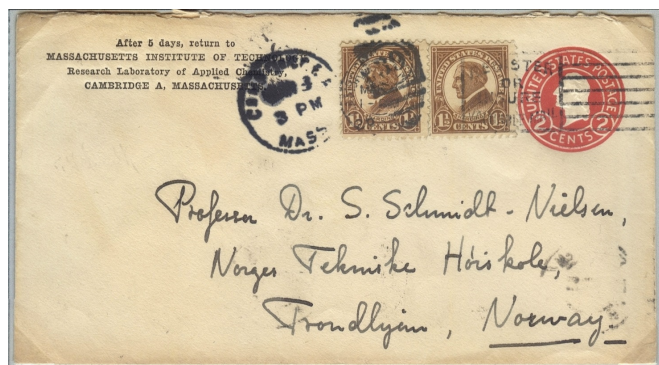 After 5 days, return to
MASSACHUSETTS INSTITUTE OF TECH
Research Laboratory of Applied Chemistry,
CAMBRIDGE A, MASSACHUSETTS
3 PM
MASS
UNITED STATES POSTAGE
1½ CENTS 1½
UNITED STATES POSTAGE
2 CENTS 2
Professor Dr. S. Schmidt-Nielsen,
Norges Tekniske Høiskole,
Trondhjem, Norway